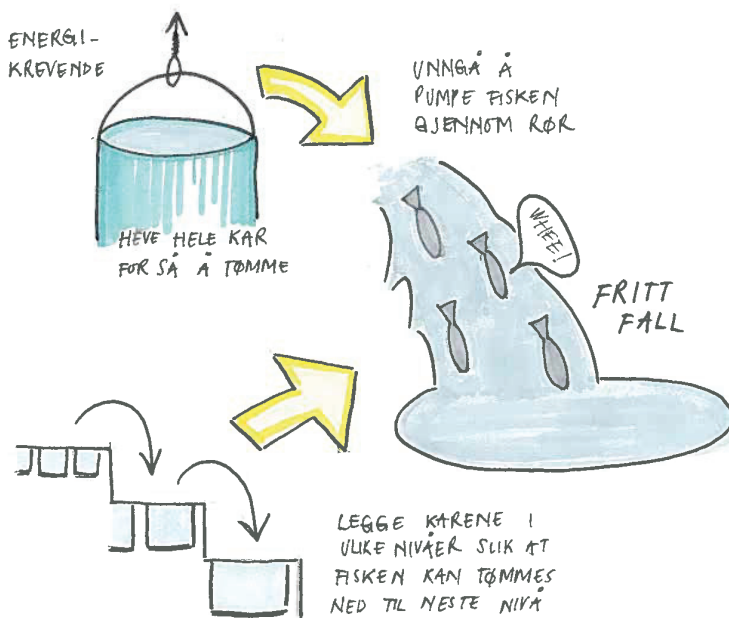 ENERGI-
KREVENDE
HEVE HELE KAR
FOR SÅ Å TØMME
UNNGÅ Å
PUMPE FISKEN
GJENNOM RØR
WHEE!
FRITT
FALL
LEGGE KARENE I
ULIKE NIVÅER SLIK AT
FISKEN KAN TØMMES
NED TIL NESTE NIVÅ